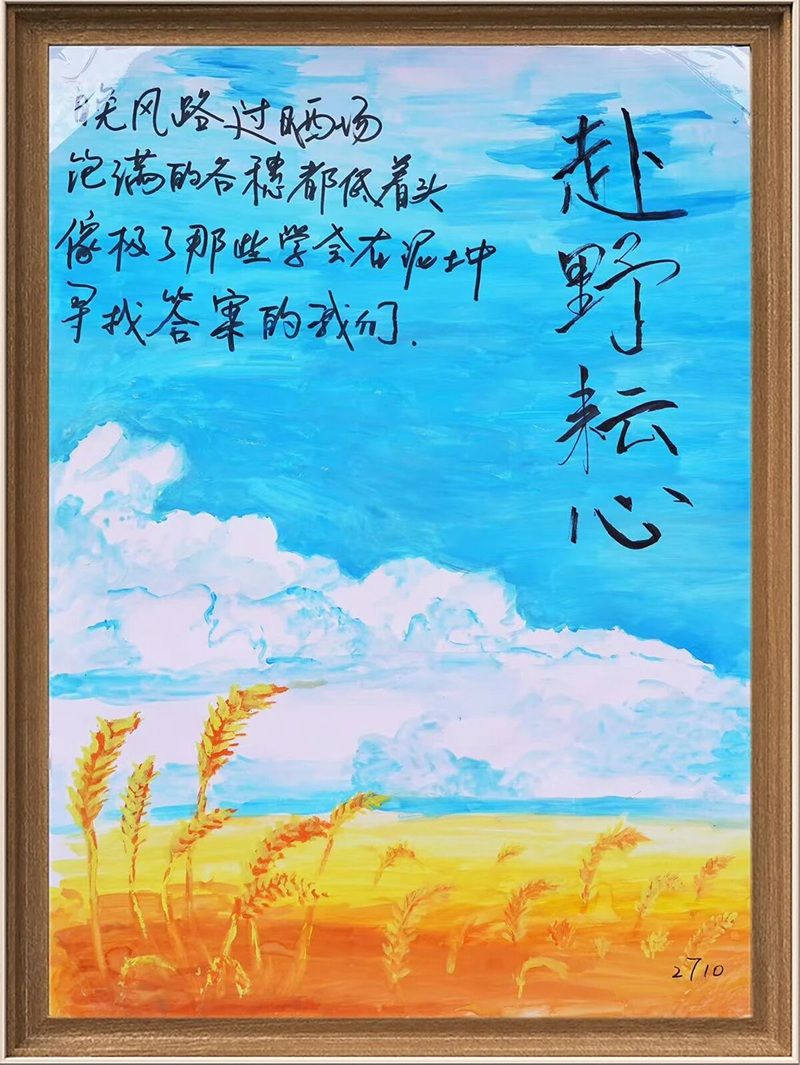 赴野耘心
晚风路过晒场
饱满的各穗都低着头
像极了那些学会在泥土中
寻找答案的我们.
2710